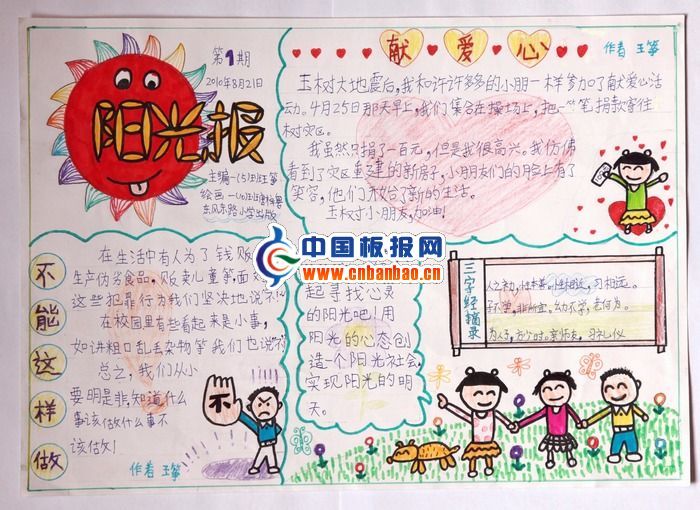 第1期
2010年8月21日
阳光报
东风东路小学出版
献爱心
作者 王筝
玉树大地震后,我和许许多多的小朋一样参加了献爱心活
动。4月25日那天早上,我们集合在操场上,把一笔笔捐款寄往
树灾区。
我虽然只捐了一百元,但是我很高兴。我仿佛
看到了灾区重建的新房子,小朋友们的脸上有了
笑容,他们开始了新的生活。
玉树小朋友,加油!
不能这样做
在生活中有人为了钱贩
生产伪劣食品,贩卖儿童等,面对
这些犯罪行为我们坚决地说不!
在校园里有些看起来是小事,
如讲粗口乱丢杂物等我们也说不
总之,我们从小
要明是非,知道什么
事该做什么事不
该做!
作者 王筝
不
中国板报网
www.cnbanbao.cn
起寻找心灵
的阳光吧!用
阳光的心态创
造一个阳光社会,
实现阳光的明
天。
三字经摘录
人之初,性本善。性相近,习相远。
子不学,非所宜。幼不学,老何为。
为人子,方少时。亲师友,习礼仪